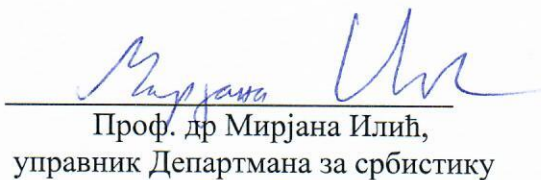 Мирјана Илић
Проф. др Мирјана Илић,
управник Департмана за србистику